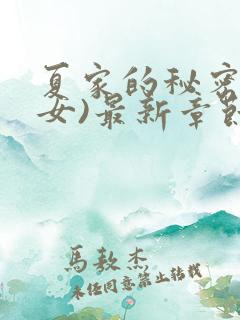 夏家的秘密
女)最新章節
馬敖杰
未经同意禁止转载